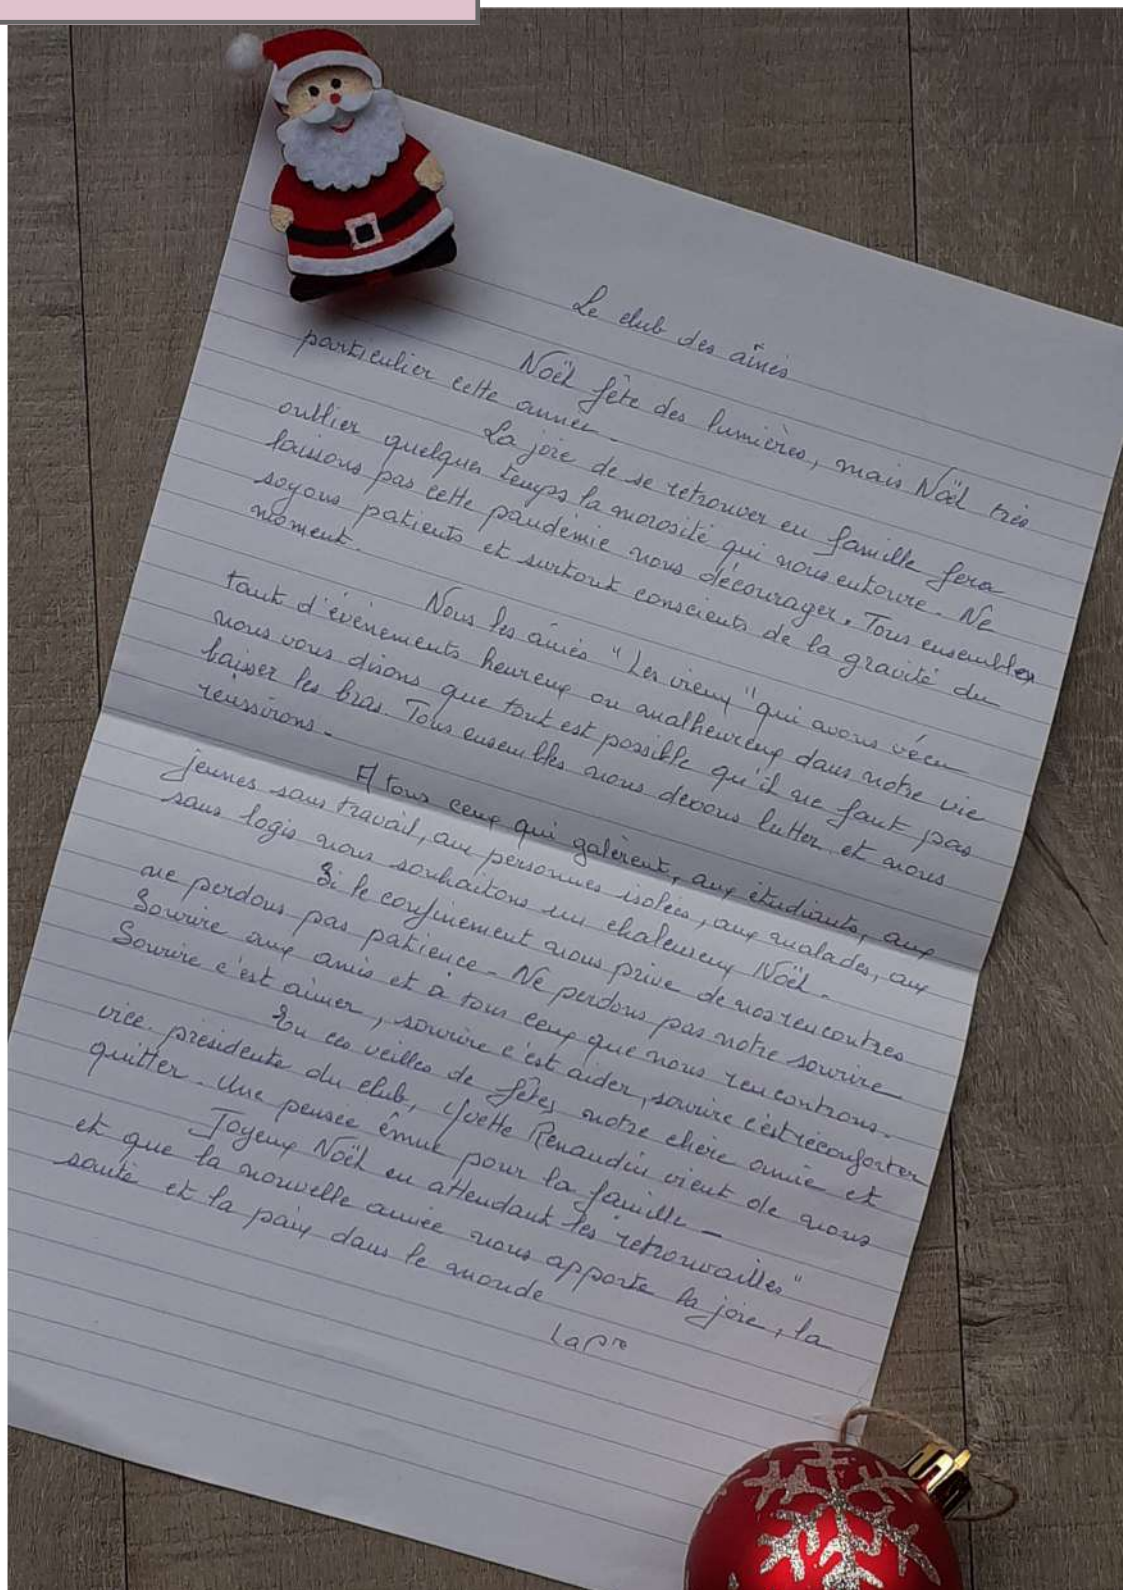 Le club des aînés
Noël fête des lumières, mais Noël très
particulier cette année.
La joie de se retrouver en famille fera
oublier quelques temps la morosité qui nous entoure. Ne
laissons pas cette pandémie nous décourager. Tous ensembles
soyons patients et surtout conscients de la gravité du
moment.
Nous les aînés "Les vieux" qui avons vécu
tant d'évènements heureux ou malheureux dans notre vie
nous vous disons que tout est possible qu'il ne faut pas
baisser les bras. Tous ensembles nous devons lutter et nous
réussirons.
A tous ceux qui galèrent, aux étudiants, aux
jeunes sans travail, aux personnes isolées, aux malades, aux
sans logis nous souhaitons un chaleureux Noël.
Si le confinement nous prive de nos rencontres
ne perdons pas patience - Ne perdons pas notre sourire
Sourire aux amis et à tous ceux que nous rencontrons.
Sourire c'est aimer, sourire c'est aider, sourire c'est réconforter
En ces veilles de fêtes notre chère amie et
vice-présidente du club, Yvette Renaudin vient de nous
quitter. Une pensée émue pour la famille -
Joyeux Noël en attendant les "retrouvailles"
et que la nouvelle année nous apporte la joie, la
santé et la paix dans le monde
La Pre